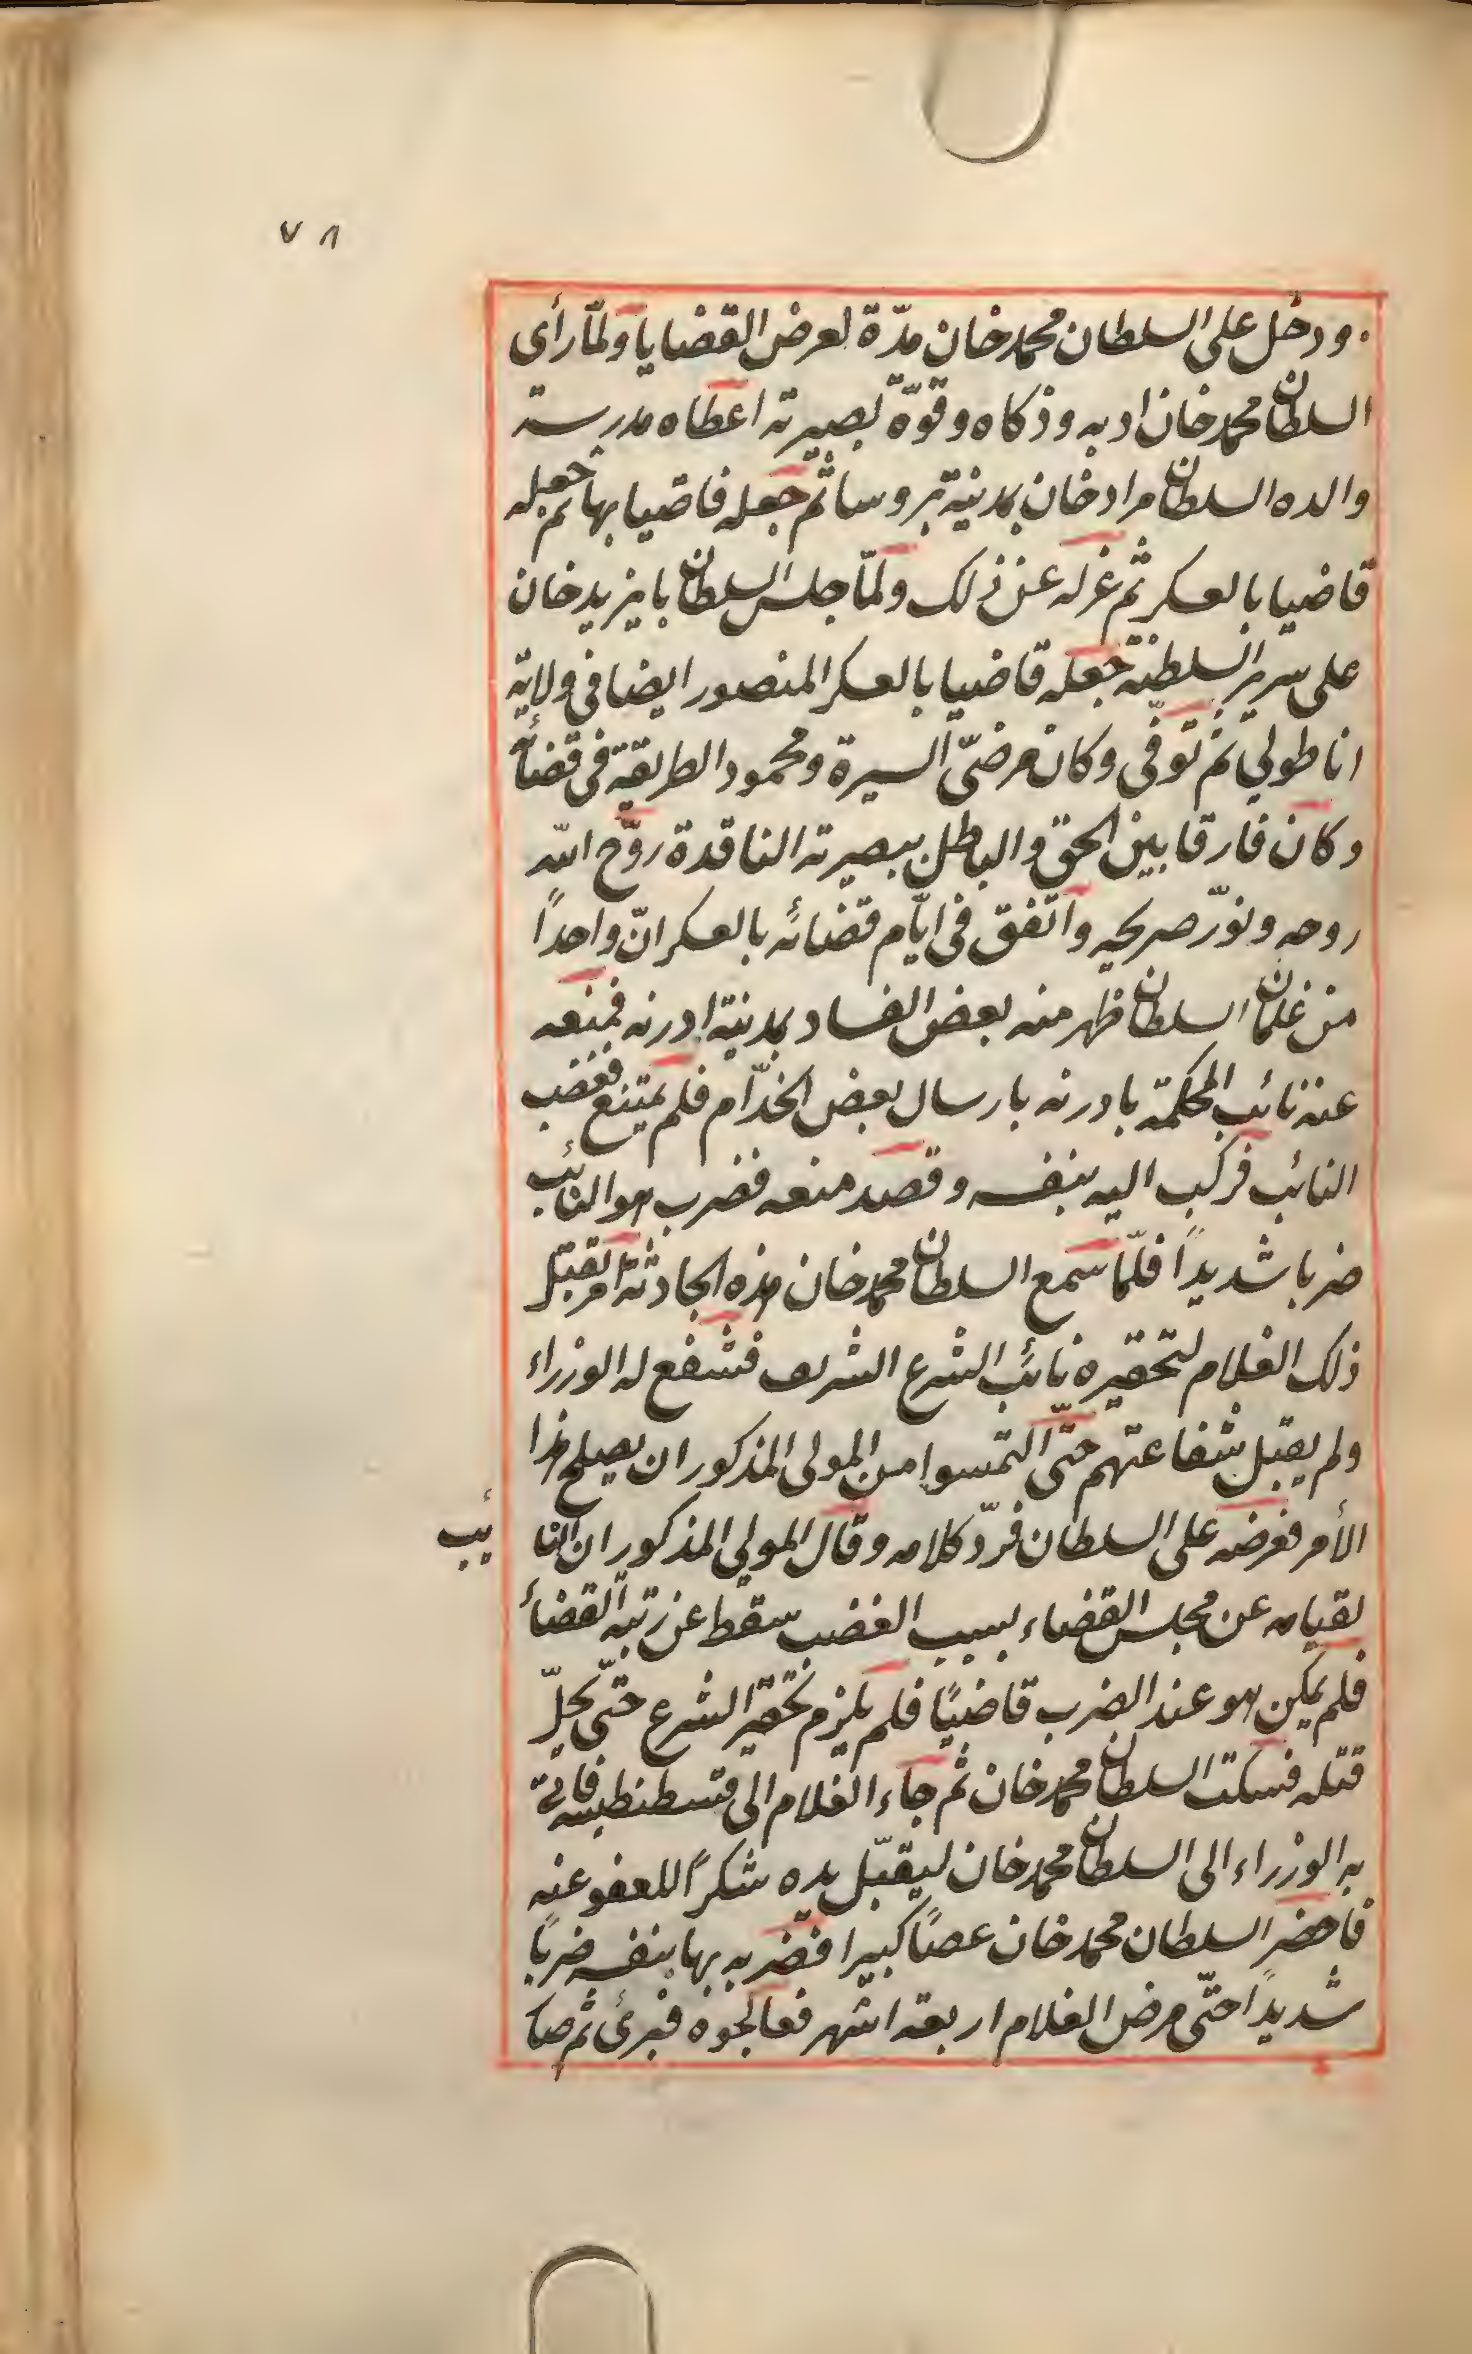 ٧٨
ودخل على السلطان محمد خان مدّة لعرض القضايا ولمّا رأى
السلطان محمد خان ادبه وذكاه وقوّة بصيرته اعطاه مدرسة
والده السلطان مراد خان بمدينة بروسا ثم جعله قاضيا بها ثم جعله
قاضيا بالعسكر ثم عزله عن ذلك ولمّا جلس السلطان بايزيد خان
على سرير السلطنة جعله قاضيا بالعسكر المنصور ايضا في ولاية
اناطولي ثم توفى وكان مرضىّ السيرة ومحمود الطريقة في قضائه
وكان فارقا بين الحق والباطل ببصيرته الناقدة روّح اللّه
روحه ونوّر ضريحه واتفق في ايّام قضائه بالعسكر انّ واحداً
من غلمان السلطان ظهر منه بعض الفساد بمدينة ادرنه فمنعه
عنه نائب المحكمة بادرنه بارسال بعض الخدّام فلم يمتنع فغضب
النائب فركب اليه بنفسه وقصد منعه فضرب هو النائب
ضربا شديداً فلمّا سمع السلطان محمد خان هذه الحادثة امر بقتل
ذلك الغلام لتحقيره نائب الشرع الشريف فشفع له الوزراء
ولم يقبل شفاعتهم حتّى التمسوا من المولى المذكور ان يصلح هذا
الأمر فعرضه على السلطان فردّ كلامه وقال المولي المذكور ان النائب
لقيامه عن مجلس القضاء بسبب الغضب سقط عن رتبة القضاء
فلم يكن هو عند الضرب قاضيًا فلم يلزم تحقير الشرع حتّى يحلّ
قتله فسكت السلطان محمد خان ثم جاء الغلام الى قسطنطينيه فاتى
به الوزراء الى السلطان محمد خان ليقبّل يده شكراً للعفو عنه
فاحضر السلطان محمد خان عصًا كبيرا فضربه بها بنفسه ضربًا
شديداً حتّى مرض الغلام اربعة اشهر فعالجوه فبرئ ثم صا